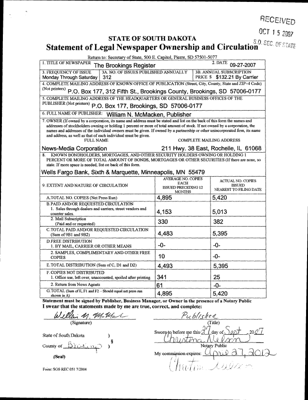 RECEIVED
OCT 15 2007
S.D. SEC. OF STATE
STATE OF SOUTH DAKOTA
Statement of Legal Newspaper Ownership and Circulation
Return to: Secretary of State, 500 E. Capitol, Pierre, SD 57501-5077
1. TITLE OF NEWSPAPER The Brookings Register
2. DATE 09-27-2007
3. FREQUENCY OF ISSUE
Monday Through Saturday
3A. NO. OF ISSUES PUBLISHED ANNUALLY
312
3B. ANNUAL SUBSCRIPTION
PRICE $ $132.21 By Carrier
4. COMPLETE MAILING ADDRESS OF KNOWN OFFICE OF PUBLICATION (Street, City, County, State and ZIP+4 Code)
(Not printers) P.O. Box 177, 312 Fifth St., Brookings County, Brookings, SD 57006-0177
5. COMPLETE MAILING ADDRESS OF THE HEADQUARTERS OR GENERAL BUSINESS OFFICES OF THE
PUBLISHER (Not printers) P.O. Box 177, Brookings, SD 57006-0177
6. FULL NAME OF PUBLISHER: William N. McMacken, Publisher
7. OWNER (If owned by a corporation, its name and address must be stated and list on the back of this form the names and
addresses of stockholders owning or holding 1 percent or more of total amount of stock. If not owned by a corporation, the
names and addresses of the individual owners must be given. If owned by a partnership or other unincorporated firm, its name
and address, as well as that of each individual must be given.
FULL NAME
COMPLETE MAILING ADDRESS
News-Media Corporation
211 Hwy. 38 East, Rochelle, IL 61068
8. KNOWN BONDHOLDERS, MORTGAGEES, AND OTHER SECURITY HOLDERS OWNING OR HOLDING 1
PERCENT OR MORE OF TOTAL AMOUNT OF BONDS, MORTGAGES OR OTHER SECURITIES (If there are none, so
state. If more space is needed, list on back of this form.
Wells Fargo Bank, Sixth & Marquette, Minneapolis, MN 55479
9. EXTENT AND NATURE OF CIRCULATION
AVERAGE NO. COPIES
EACH
ISSUED PRECEDING 12
MONTHS
ACTUAL NO. COPIES
ISSUED
NEAREST TO FILING DATE
A. TOTAL NO. COPIES (Net Press Run)
4,895
5,420
B. PAID AND/OR REQUESTED CIRCULATION
1. Sales through dealers and carriers, street vendors and
counter sales.
4,153
5,013
2. Mail Subscription
(Paid and/or requested)
330
382
C. TOTAL PAID AND/OR REQUESTED CIRCULATION
(Sum of 9B1 and 9B2)
4,483
5,395
D. FREE DISTRIBUTION
1. BY MAIL, CARRIER OR OTHER MEANS
-0-
-0-
2. SAMPLES, COMPLIMENTARY AND OTHER FREE
COPIES
10
-0-
E. TOTAL DISTRIBUTION (Sum of C, D1 and D2)
4,493
5,395
F. COPIES NOT DISTRIBUTED
1. Office use, left over, unaccounted, spoiled after printing
341
25
2. Return from News Agents
61
-0-
G. TOTAL (Sum of E, F1 and F2 - Should equal net press run
shown in A)
4,895
5,420
Statement must be signed by Publisher, Business Manager, or Owner in the presence of a Notary Public
I swear that the statements made by me are true, correct, and complete:
Publisher
(Signature)
(Title)
State of South Dakota )
Sworn to before me this 27 day of Sept. 2007
County of Brookings )
Notary Public
(Seal)
My commission expires: April 27, 2012